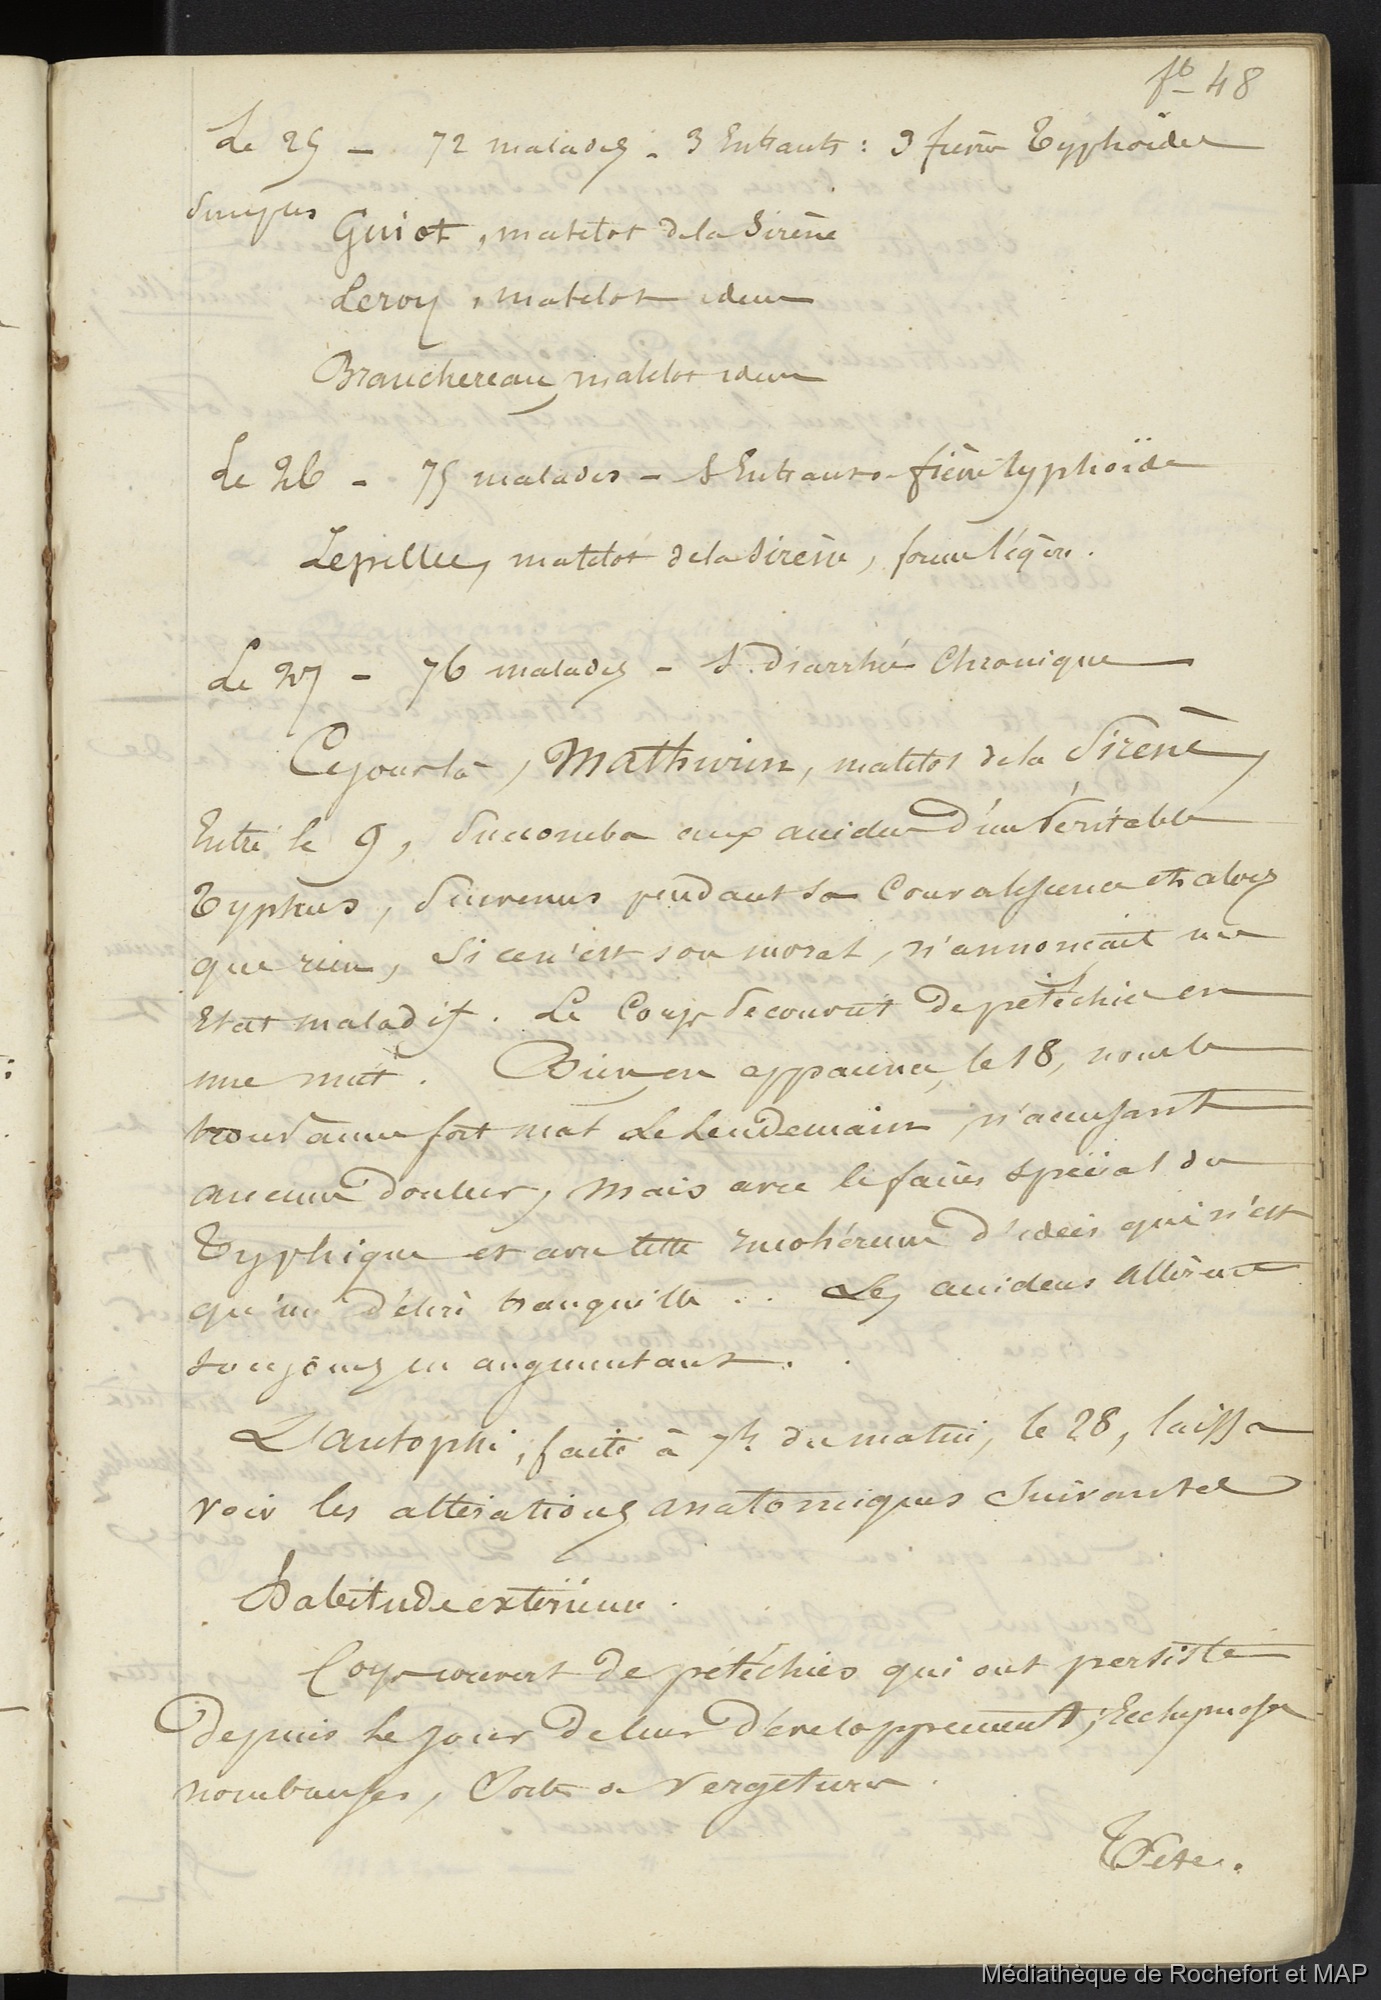 fo 48
Le 25 — 72 malades - 3 Entrants : 3 fièvre Typhoïdes
simples
Guiot, matelot de la Sirène
Leroy, matelot idem
Brauchereau, matelot idem
Le 26 - 75 malades - 5 Entrants - fièvre typhoïde
matelot de la Sirène, forme légère.
Le 27 - 76 malades - 5. Diarrhée Chronique
Ce jour là, Mathurin, matelot de la Sirène,
Entré le 9, succomba aux accidens d'un véritable
Typhus, survenus pendant sa Convalescence et alors
que rien, si ce n'est son moral, n'annonçait un
Etat maladif. Le Corps se couvrit de pétéchies en
une nuit. Bien en apparence, le 18, nous le
trouvames fort mal le Lendemain, n'accusant
aucune douleur, mais avec le facies spécial du
Typhique et avec cette incohérence d'idées qui n'est
qu'un délire tranquille... Les accidens allèrent
toujours en augmentant.
L'autopsie, faite à 7h du matin, le 28, laissa
voir les altérations anatomiques suivantes
Habitude extérieure.
Corps couvert de pétéchies qui ont persisté
depuis le jour de leur développement; Ecchymoses
nombreuses, sorte de vergetures.
Tête.
Médiathèque de Rochefort et MAP